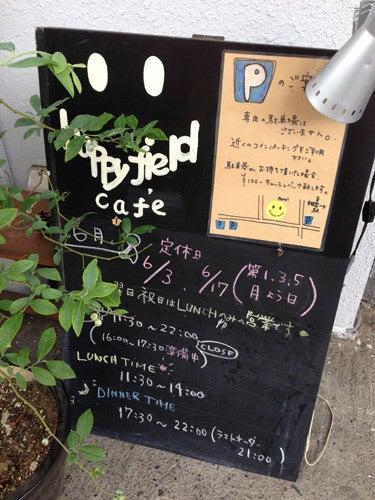 happyfield
cafe
P のご案
専用の駐車場は
ございません。
近くのコインパーキングをご利用
下さい。
駐車券
P
P
6月
定休日
6/3、6/17(第1.3.5
月よう日)
日祝日はLUNCHのみの営業です
11:30~22:00
(16:00~17:30 準備中) CLOSE
LUNCH TIME
11:30~14:00
DINNER TIME
17:30~22:00(ラストオーダー
21:00)